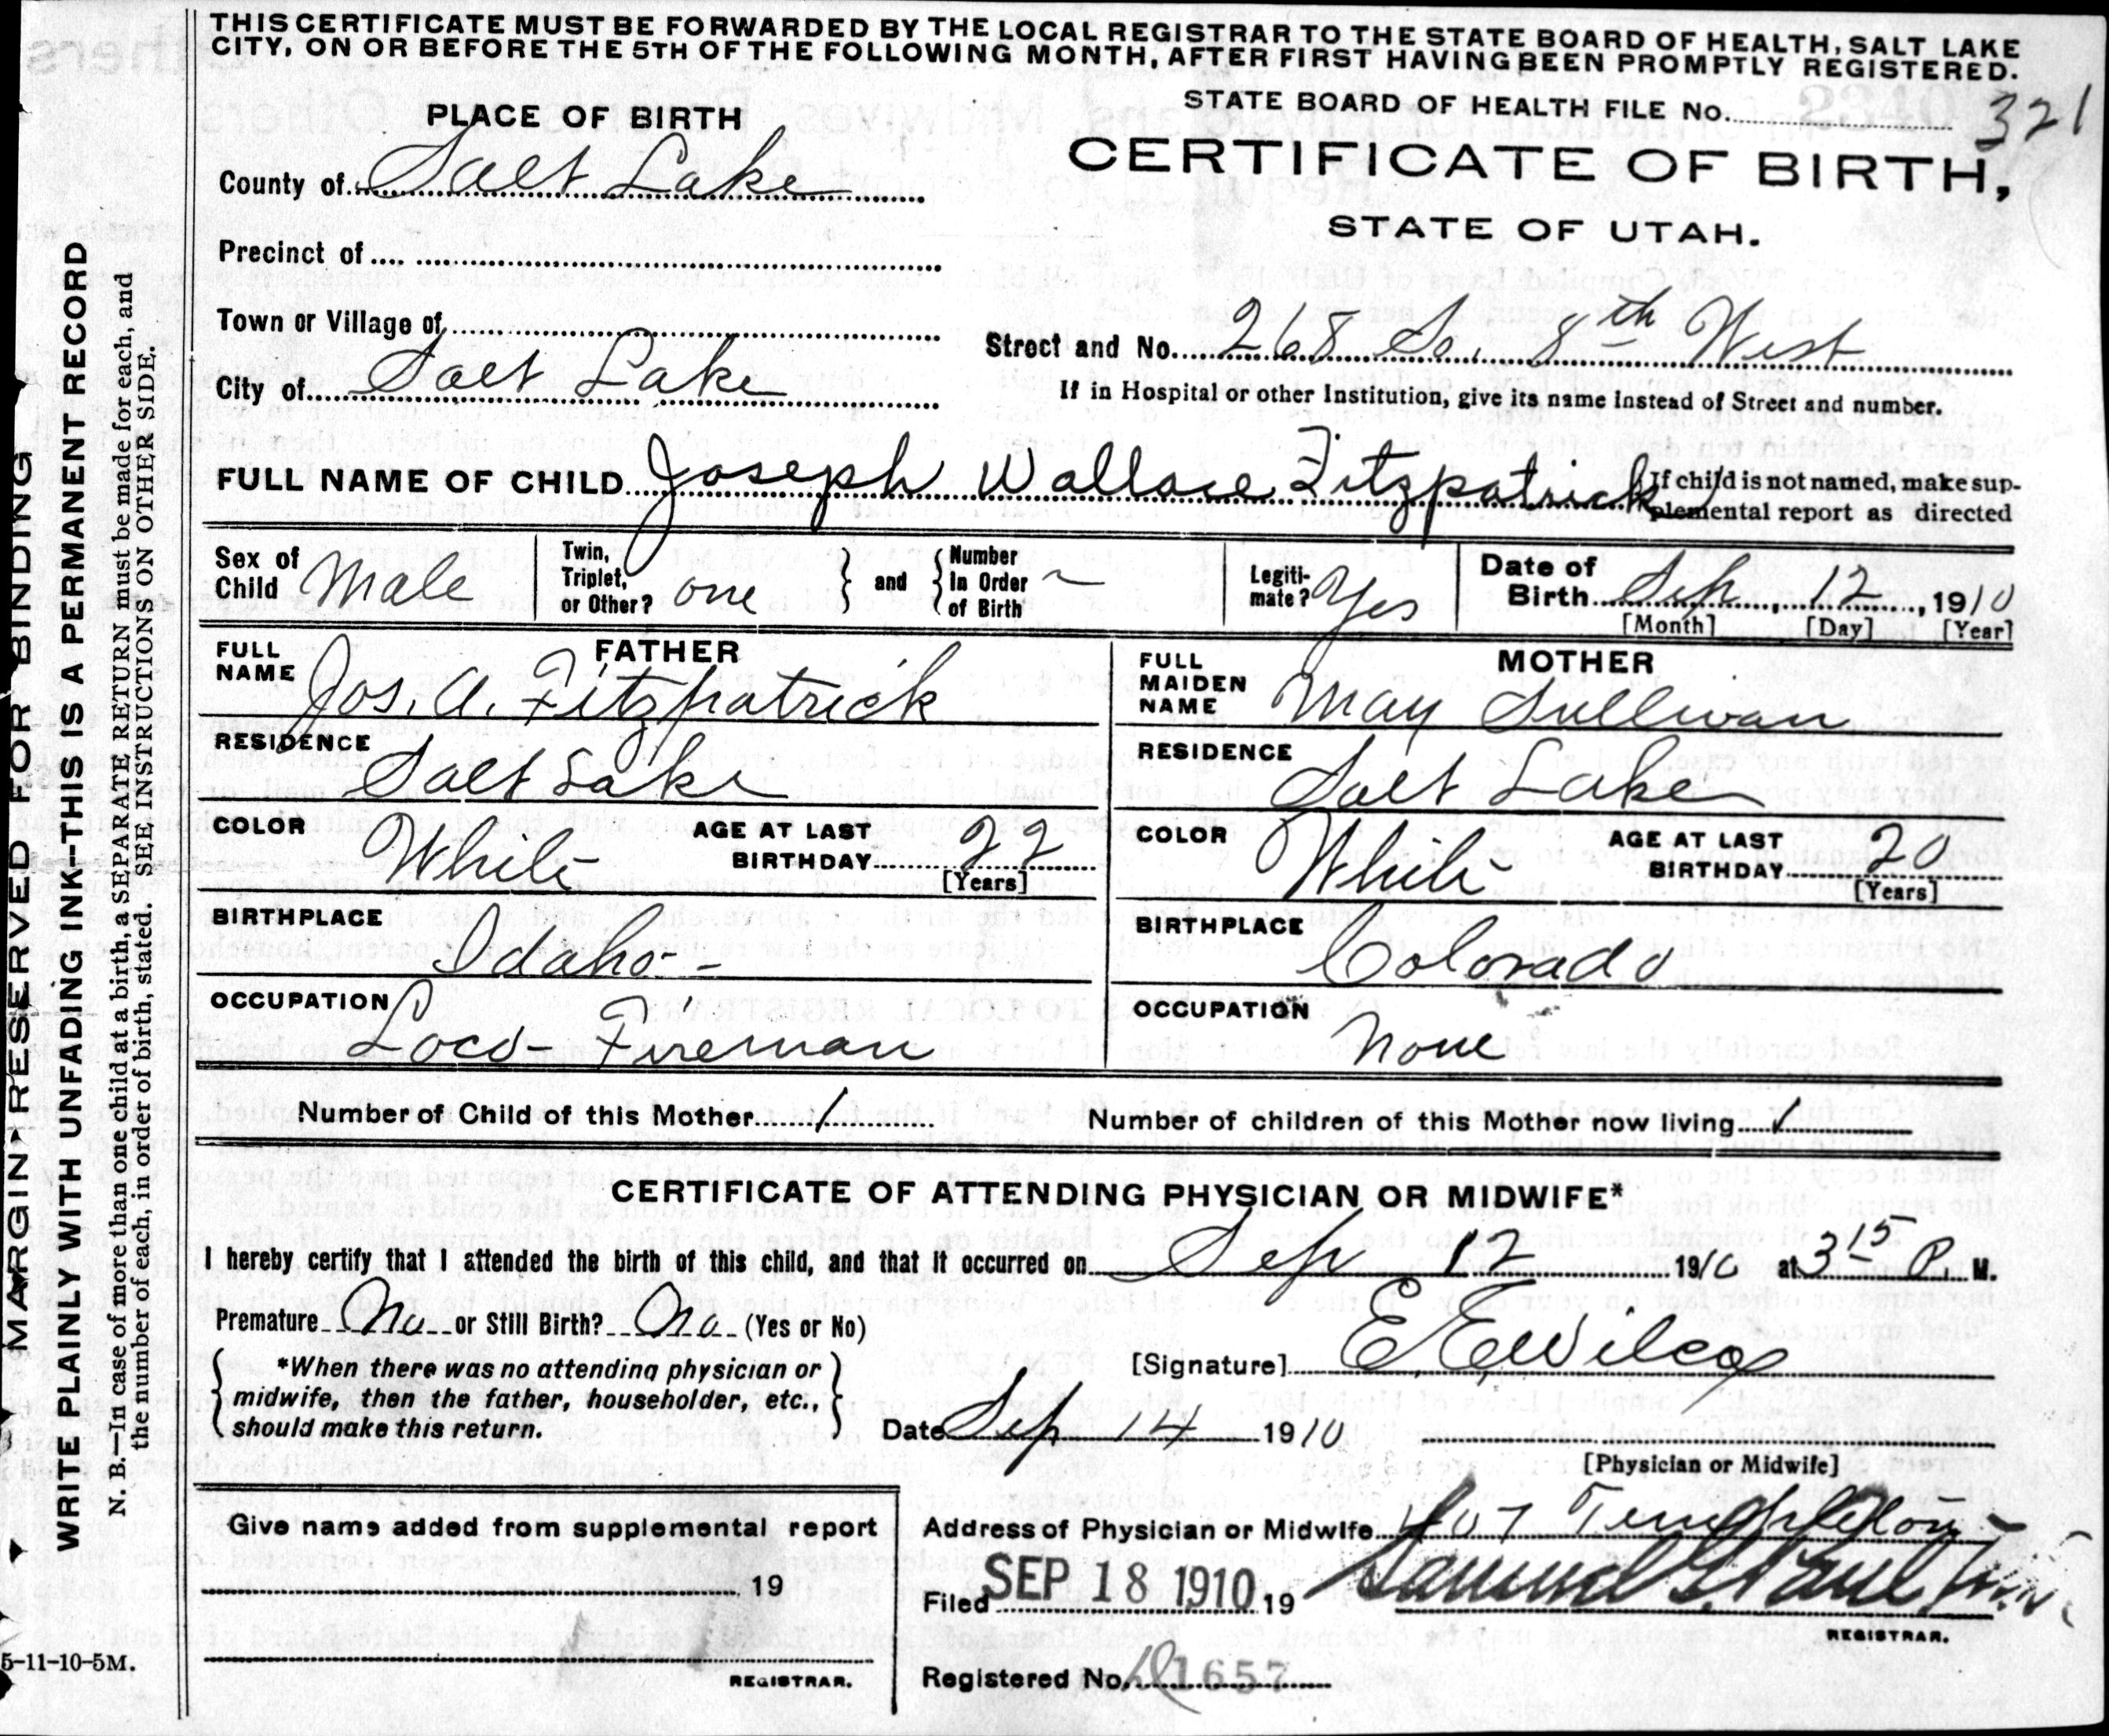 THIS CERTIFICATE MUST BE FORWARDED BY THE LOCAL REGISTRAR TO THE STATE BOARD OF HEALTH, SALT LAKE
CITY, ON OR BEFORE THE 5TH OF THE FOLLOWING MONTH, AFTER FIRST HAVING BEEN PROMPTLY REGISTERED.
STATE BOARD OF HEALTH FILE No. 321
PLACE OF BIRTH
CERTIFICATE OF BIRTH,
STATE OF UTAH.
County of Salt Lake
Precinct of
Town or Village of
Street and No. 268 So. 8th West
City of Salt Lake
If in Hospital or other Institution, give its name instead of Street and number.
FULL NAME OF CHILD Joseph Wallace Fitzpatrick
If child is not named, make sup-
plemental report as directed
Sex of Child Male
Twin, Triplet, or Other? one
and
Number In Order of Birth ~
Legiti-
mate? Yes
Date of Birth Sep, 12, 1910
[Month] [Day] [Year]
FATHER
FULL NAME Jos. A. Fitzpatrick
RESIDENCE Salt Lake
COLOR White
AGE AT LAST BIRTHDAY 22
[Years]
BIRTHPLACE Idaho -
OCCUPATION Loco- Fireman
MOTHER
FULL MAIDEN NAME May Sullivan
RESIDENCE Salt Lake
COLOR White
AGE AT LAST BIRTHDAY 20
[Years]
BIRTHPLACE Colorado
OCCUPATION None
Number of Child of this Mother 1
Number of children of this Mother now living 1
CERTIFICATE OF ATTENDING PHYSICIAN OR MIDWIFE*
I hereby certify that I attended the birth of this child, and that it occurred on Sep 12 1910 at 3 15 P. M.
Premature No or Still Birth? No (Yes or No)
*When there was no attending physician or
midwife, then the father, householder, etc.,
should make this return.
[Signature] E E Wilcox
Date Sep 14 1910
[Physician or Midwife]
Give name added from supplemental report
19
REGISTRAR.
Address of Physician or Midwife 407 Templeton
Filed SEP 18 1910 19
Samuel G. Paul
REGISTRAR.
Registered No. 1657
MARGIN RESERVED FOR BINDING
WRITE PLAINLY WITH UNFADING INK—THIS IS A PERMANENT RECORD
N. B.—In case of more than one child at a birth, a SEPARATE RETURN must be made for each, and
the number of each, in order of birth, stated. SEE INSTRUCTIONS ON OTHER SIDE.
5-11-10-5M.